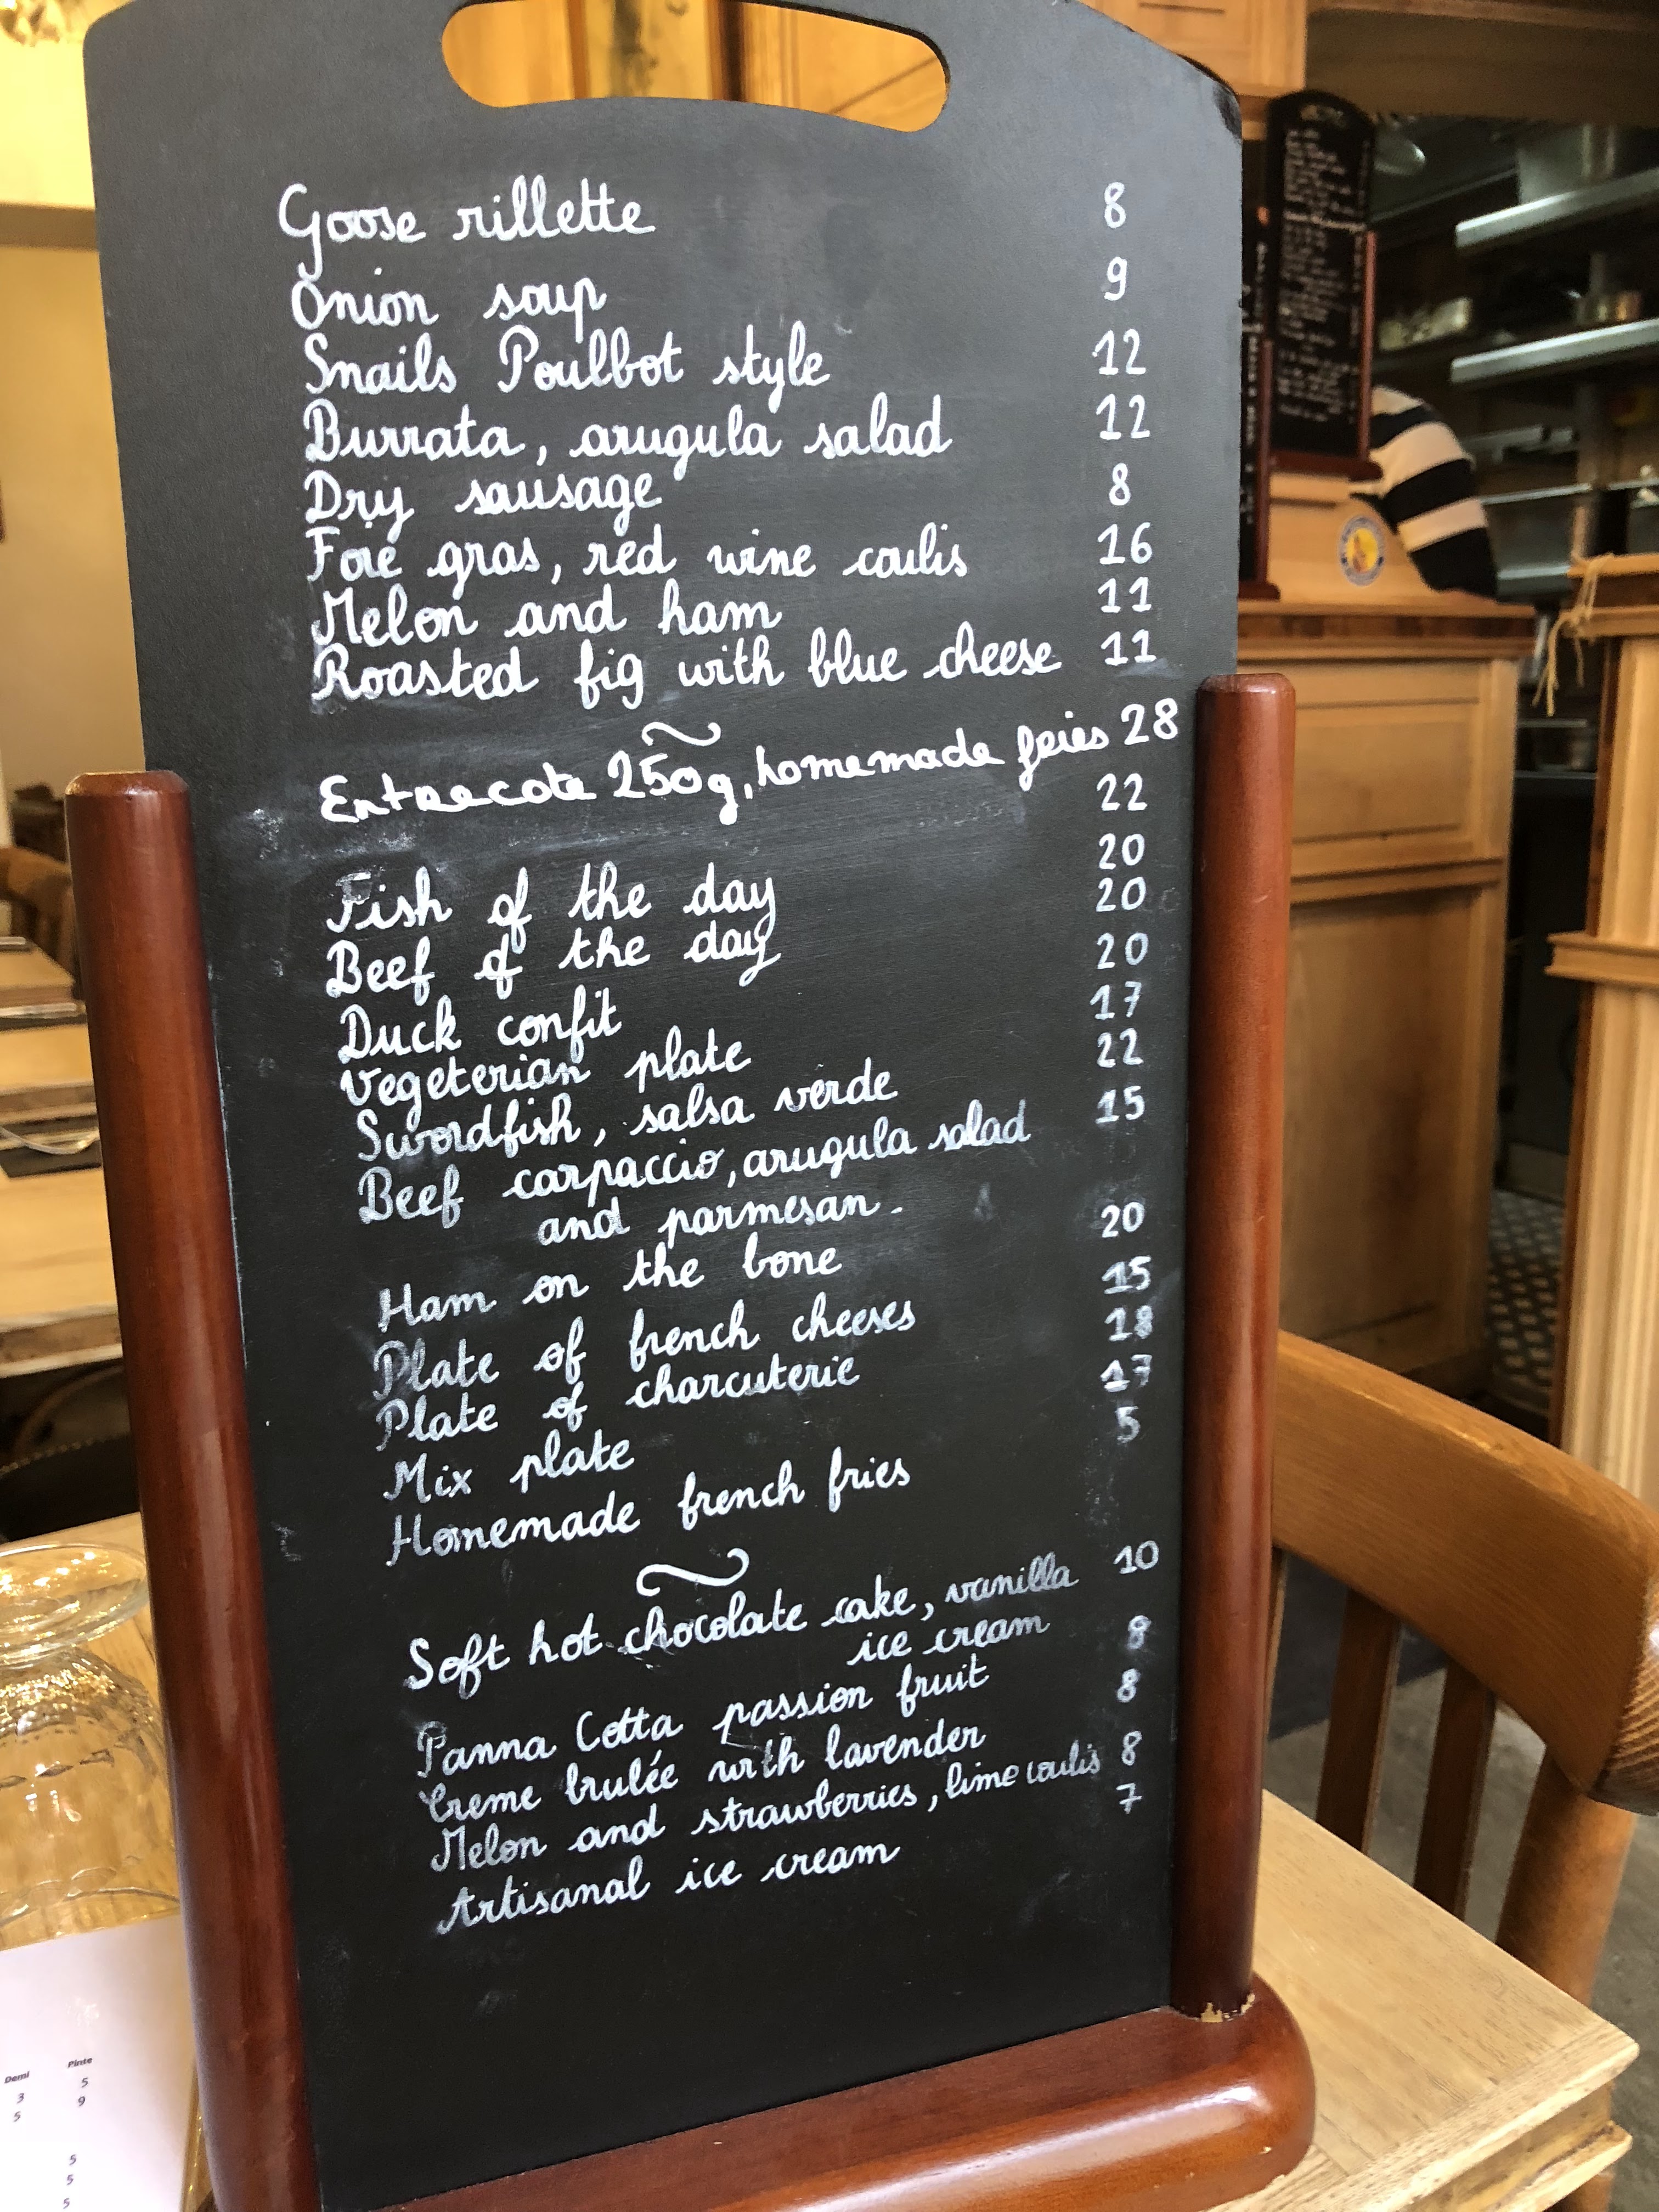 Goose rillette 8
Onion soup 9
Snails Poulbot style 12
Burrata, arugula salad 12
Dry sausage 8
Foie gras, red wine coulis 16
Melon and ham 11
Roasted fig with blue cheese 11
Entrecote 250g, homemade fries 28
22
Fish of the day 20
Beef of the day 20
Duck confit 20
Vegeterian plate 17
Swordfish, salsa verde 22
Beef carpaccio, arugula salad 15
and parmesan.
Ham on the bone 20
Plate of french cheeses 15
Plate of charcuterie 18
Mix plate 17
Homemade french fries 5
Soft hot chocolate cake, vanilla 10
ice cream
Panna Cotta passion fruit 8
Creme brulée with lavender 8
Melon and strawberries, lime coulis 8
Artisanal ice cream 7
Demi Pinte
3 5
5 9
5
5
5